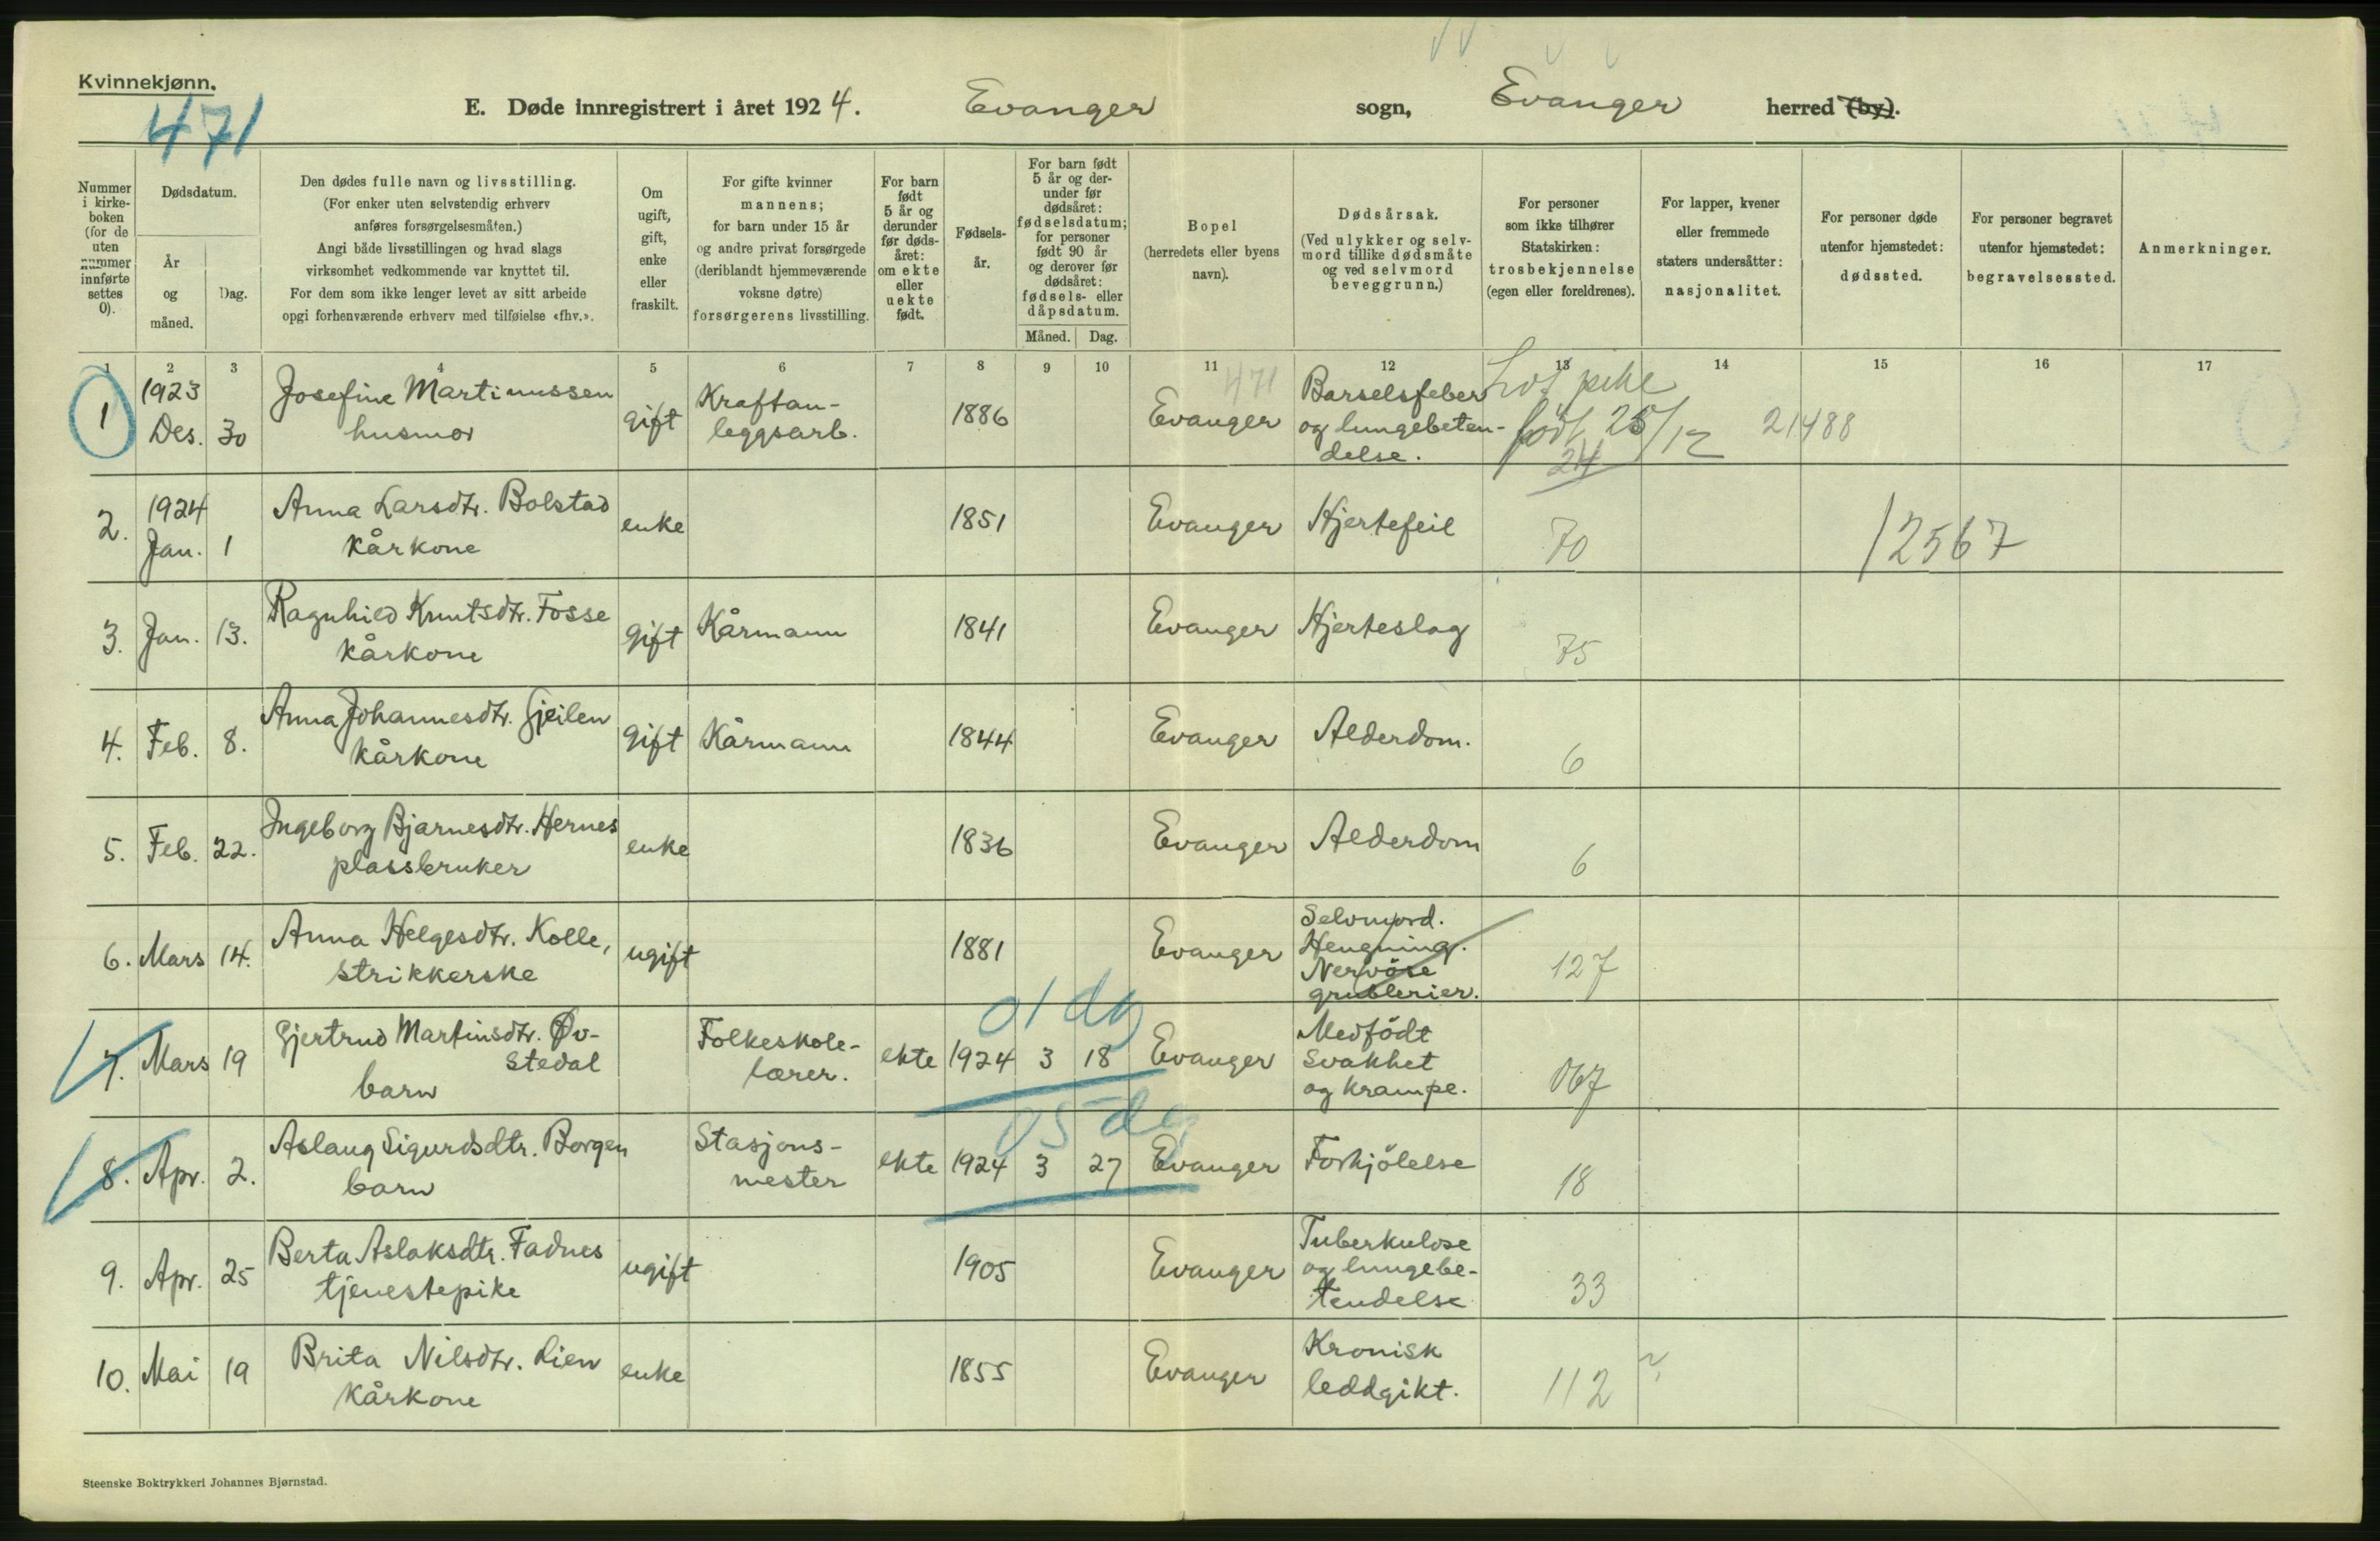 Kvinnekjønn.
471
E. Døde innregistrert i året 1924. Evanger sogn, Evanger herred (by).
Nummer i kirke-boken (for de uten nummer innførte settes 0).
Dødsdatum.
År og måned.
Dag.
Den dødes fulle navn og livsstilling.
(For enker uten selvstendig erhverv
anføres forsørgelsesmåten.)
Angi både livsstillingen og hvad slags
virksomhet vedkommende var knyttet til.
For dem som ikke lenger levet av sitt arbeide
opgi forhenværende erhverv med tilføielse «fhv.».
Om ugift, gift, enke eller fraskilt.
For gifte kvinner
mannens;
for barn under 15 år
og andre privat forsørgede
(deriblandt hjemmeværende
voksne døtre)
forsørgerens livsstilling.
For barn født 5 år og derunder før døds-året: om ekte eller uekte født.
Fødsels-år.
For barn født 5 år og der-under før dødsåret: fødselsdatum; for personer født 90 år og derover før dødsåret: fødsels- eller dåpsdatum.
Måned. Dag.
Bopel
(herredets eller byens
navn).
Dødsårsak.
(Ved ulykker og selv-
mord tillike dødsmåte
og ved selvmord
beveggrunn.)
For personer
som ikke tilhører
Statskirken:
trosbekjennelse
(egen eller foreldrenes).
For lapper, kvener
eller fremmede
staters undersåtter:
nasjonalitet.
For personer døde
utenfor hjemstedet:
dødssted.
For personer begravet
utenfor hjemstedet:
begravelsessted.
Anmerkninger.
1 2 3 4 5 6 7 8 9 10 11 12 13 14 15 16 17
1 1923 Des. 30 Josefine Martinussen husmor gift Kraftan-leggsarb. 1886 Evanger 471 Barselsfeber og lungebeten-delse. pike født 25/12 24 21488
2. 1924 Jan. 1 Anna Larsdtr. Bolstad kårkone enke 1851 Evanger Hjertefeil 70 12567
3. Jan. 13. Ragnhild Knutsdtr. Fosse kårkone gift Kårmann 1841 Evanger Hjerteslag 75
4. Feb. 8. Anna Johannesdtr. Gjeilen kårkone gift Kårmann 1844 Evanger Alderdom. 6
5. Feb. 22. Ingeborg Bjarnesdtr. Hernes plassbruker enke 1836 Evanger Alderdom 6
6. Mars 14. Anna Helgesdtr. Kolle, strikkerske ugift 1881 Evanger Selvmord. Hengning. Nervöse grublerier. 127
7. Mars 19 Gjertrud Martinsdtr. Øv-stedal barn Folkeskole-lærer. ekte 1924 3 18 01 dg Evanger Medfödt svakhet og krampe. 067
8. Apr. 2. Aslaug Sigurdsdtr. Borgen barn Stasjons-mester ekte 1924 3 27 05 dg Evanger Forkjölelse 18
9. Apr. 25 Berta Aslaksdtr. Fadnes tjenestepike ugift 1905 Evanger Tuberkulose og lungebe-tendelse 33
10. Mai 19 Brita Nilsdtr. Lien kårkone enke 1855 Evanger Kronisk leddgikt. 112
Steenske Boktrykkeri Johannes Bjørnstad.